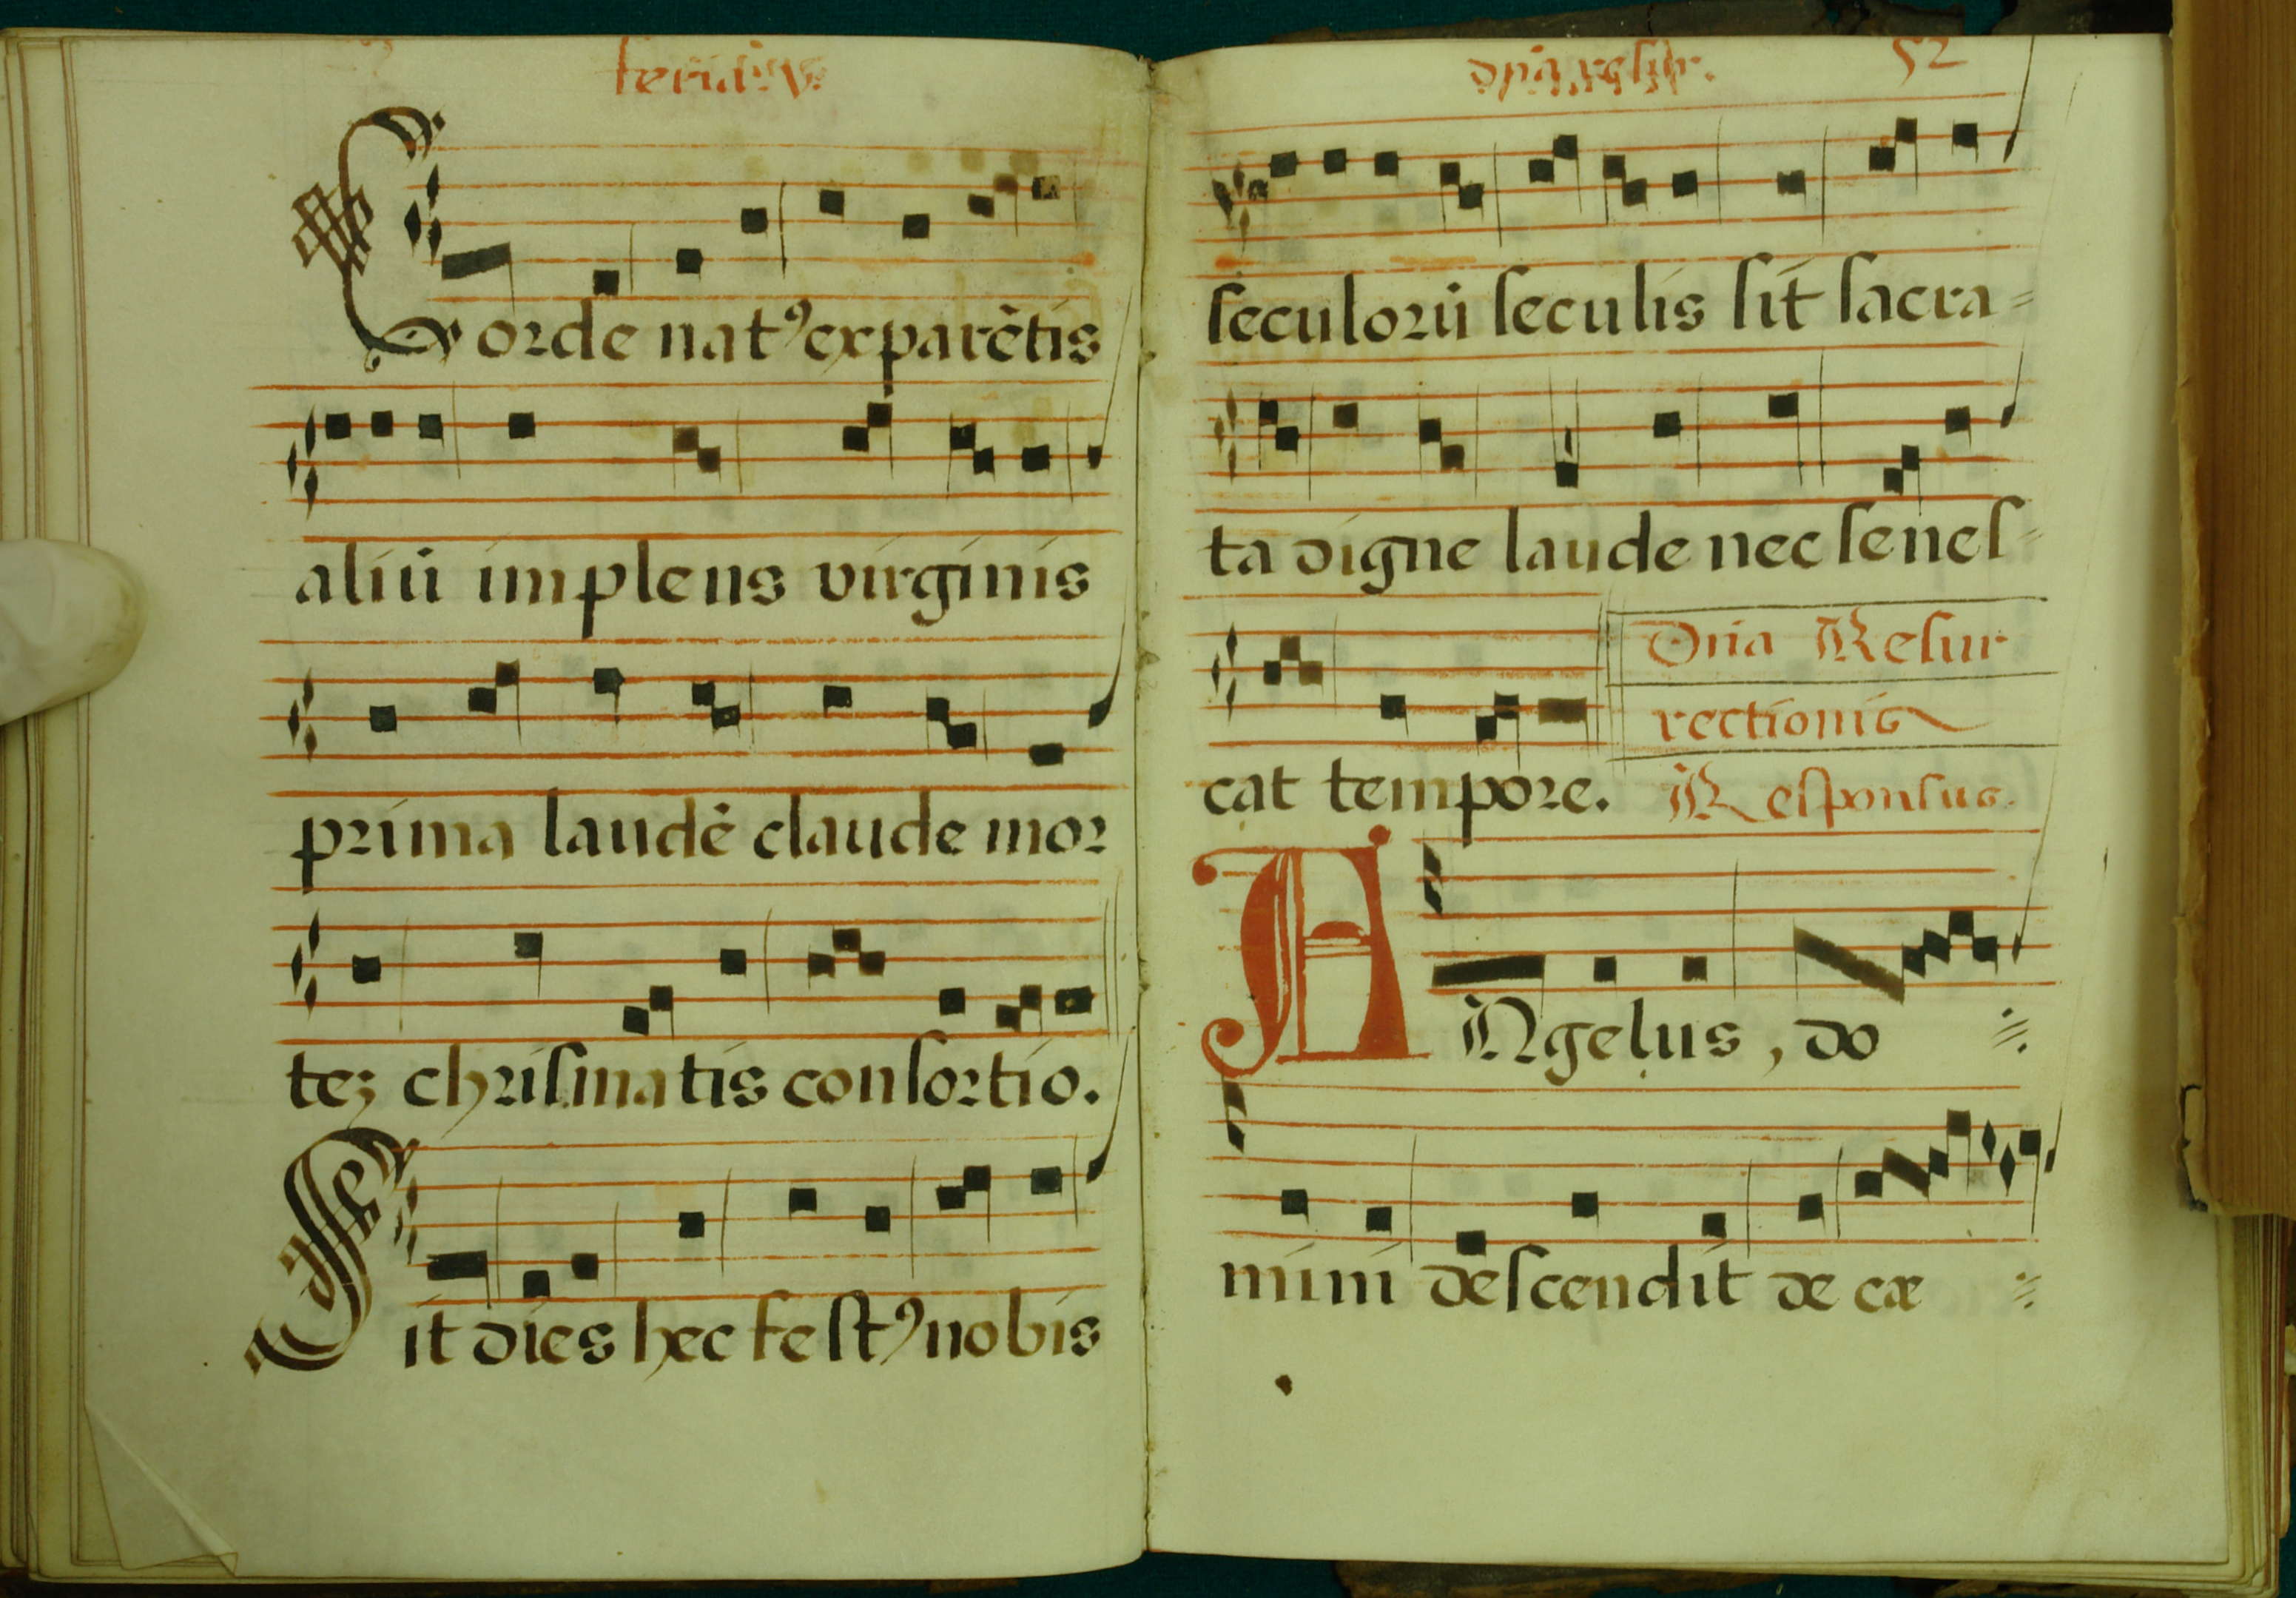 feria. v.
Corde natꝰ ex parētis
aliū implens virginis
prima laudē claude mor
teꝫ chriſmatis conſortio.
Sit dies hec feſtꝰ nobis
dn̄a reſur. 52
ſeculorū ſeculis ſit ſacra=
ta digne laude nec ſeneſ-
Dn̄a Reſur
rectionis
cat tempore. Reſponſus.
ANgelus, do
mini deſcendit de cæ